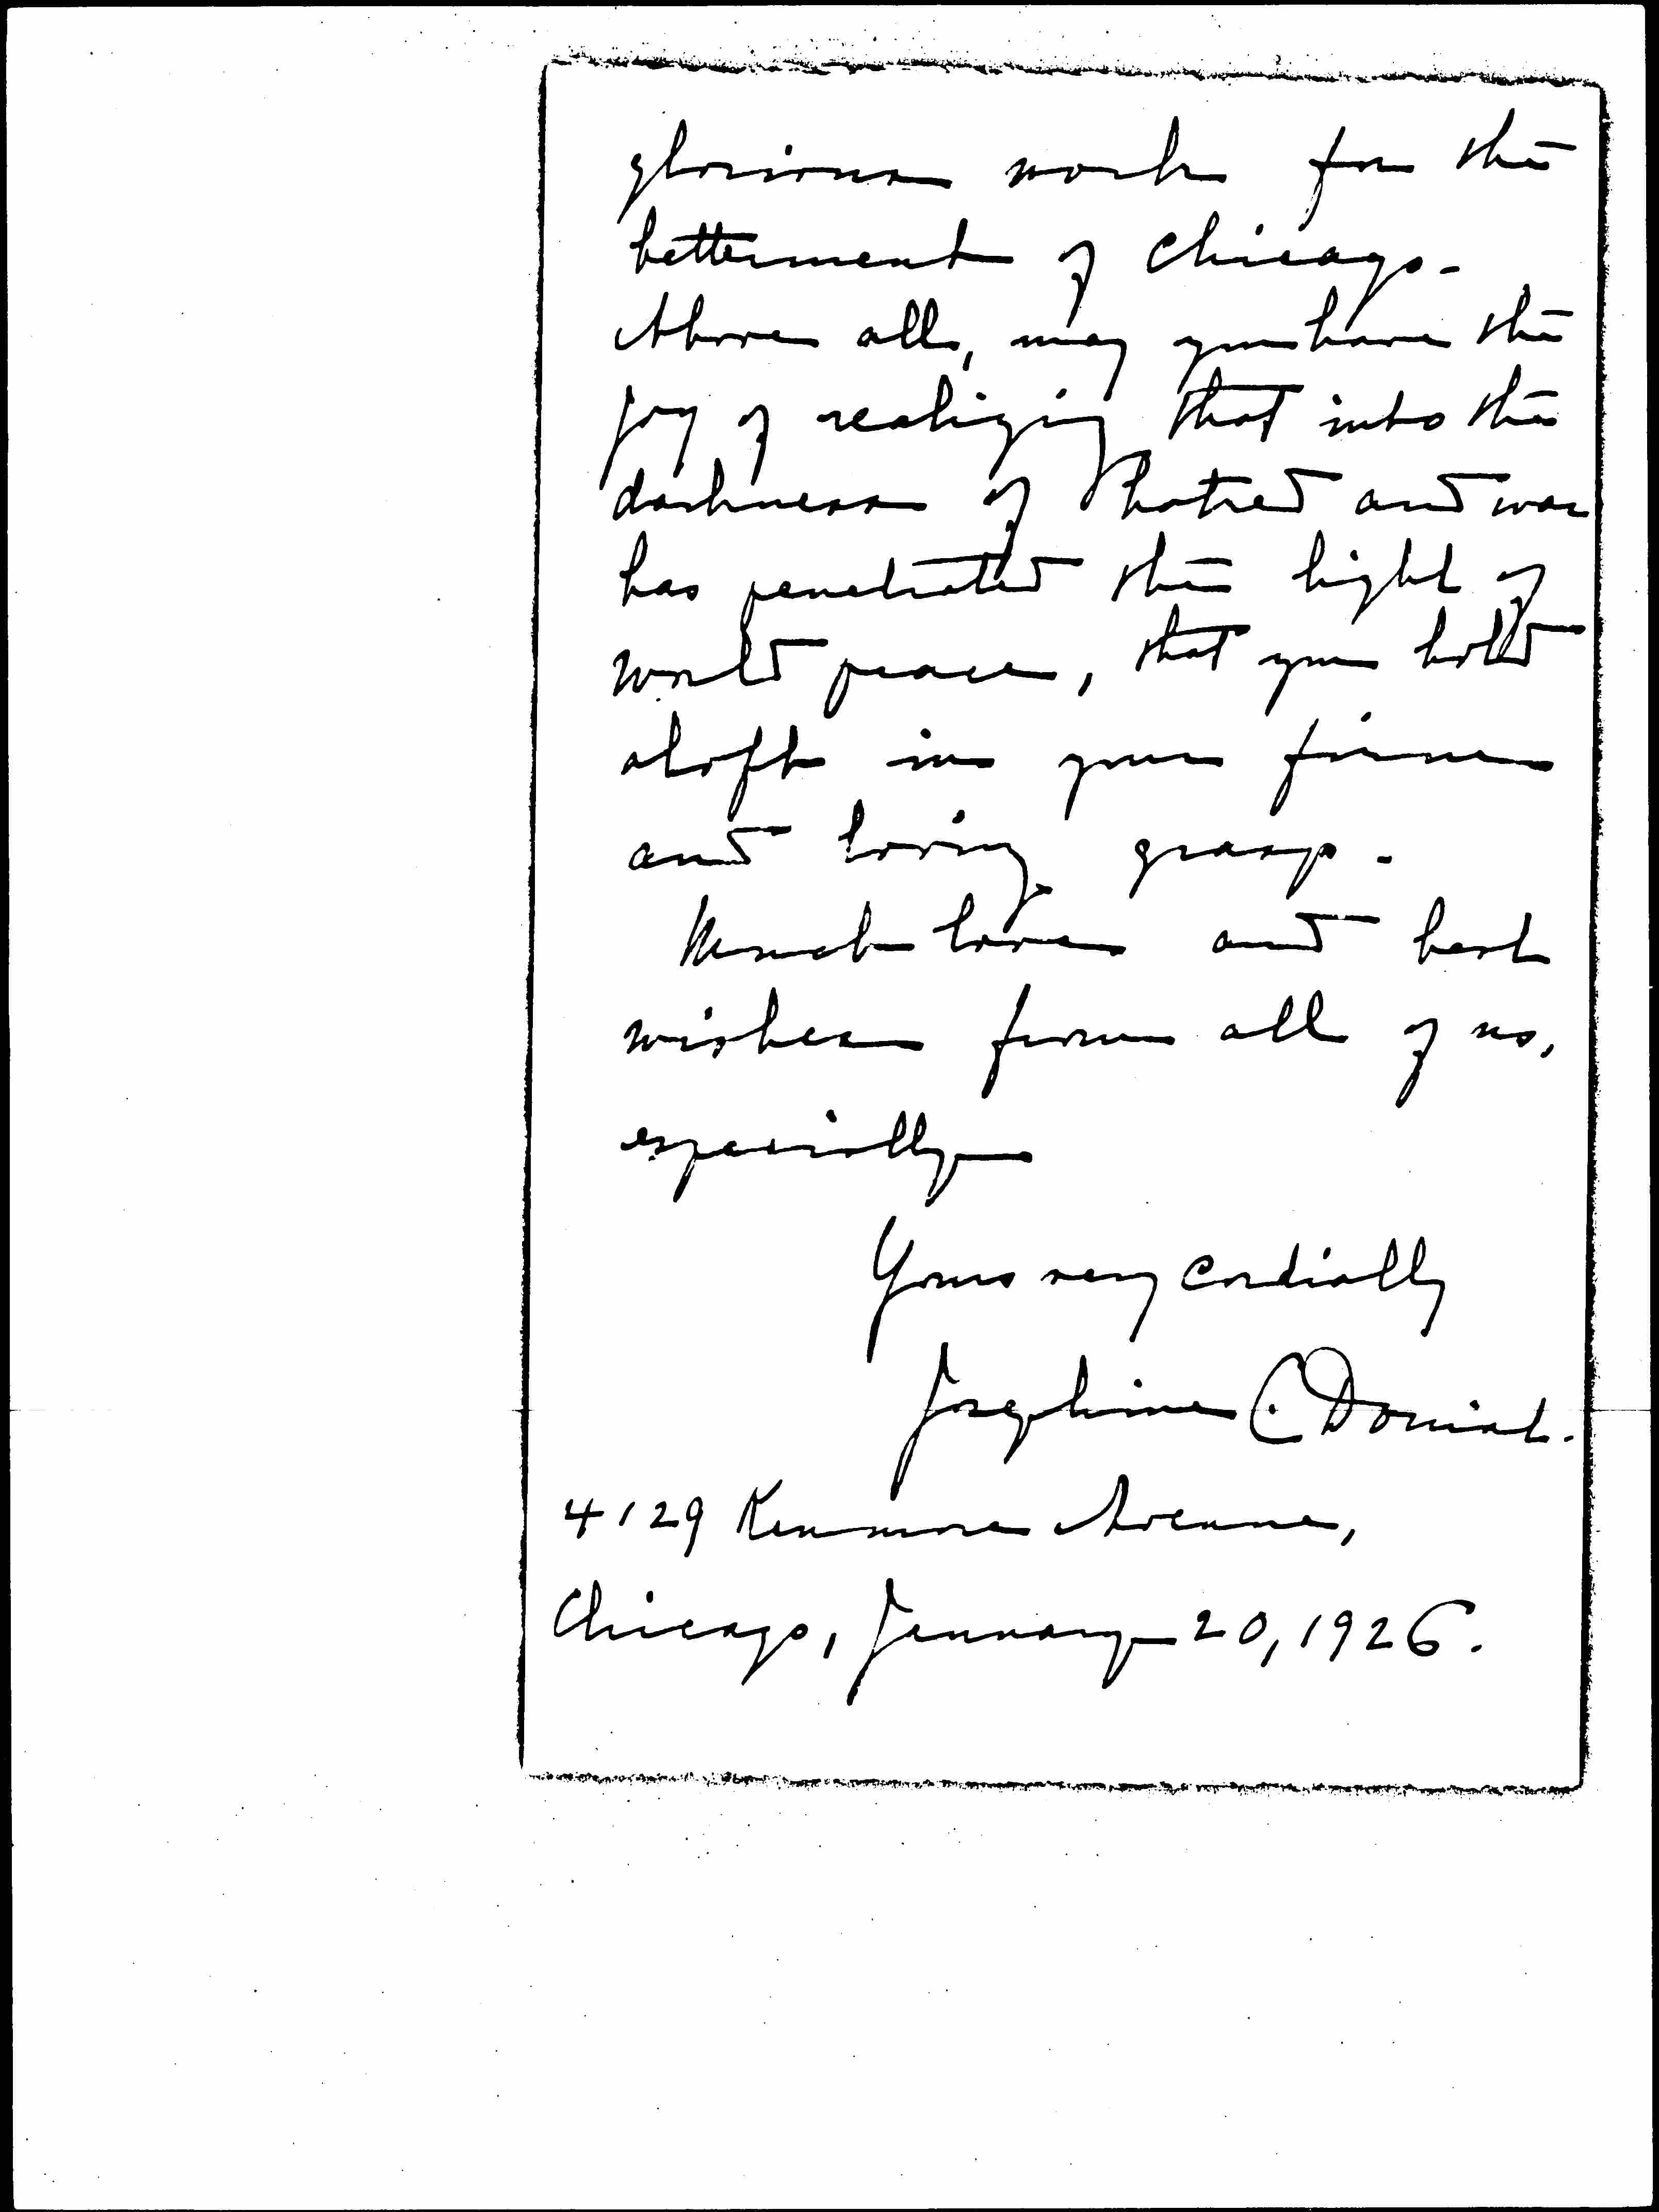 glorious work for the
betterment of Chicago.
Above all, may you have the
joy of realizing that into the
darkness of hatred and war
has penetrated the light of
world peace, that you hold
aloft in your firm
and loving grasp.
Much love and best
wishes from all of us,
especially
Yours very cordially
Josephine C. Doniat.
4129 Kenmore Avenue,
Chicago, January 20, 1926.